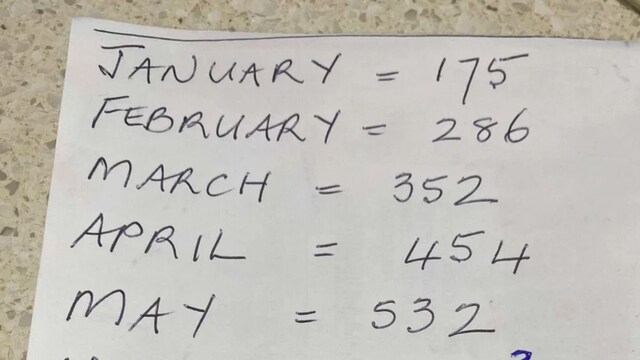 JANUARY = 175
FEBRUARY = 286
MARCH = 352
APRIL = 454
MAY = 532